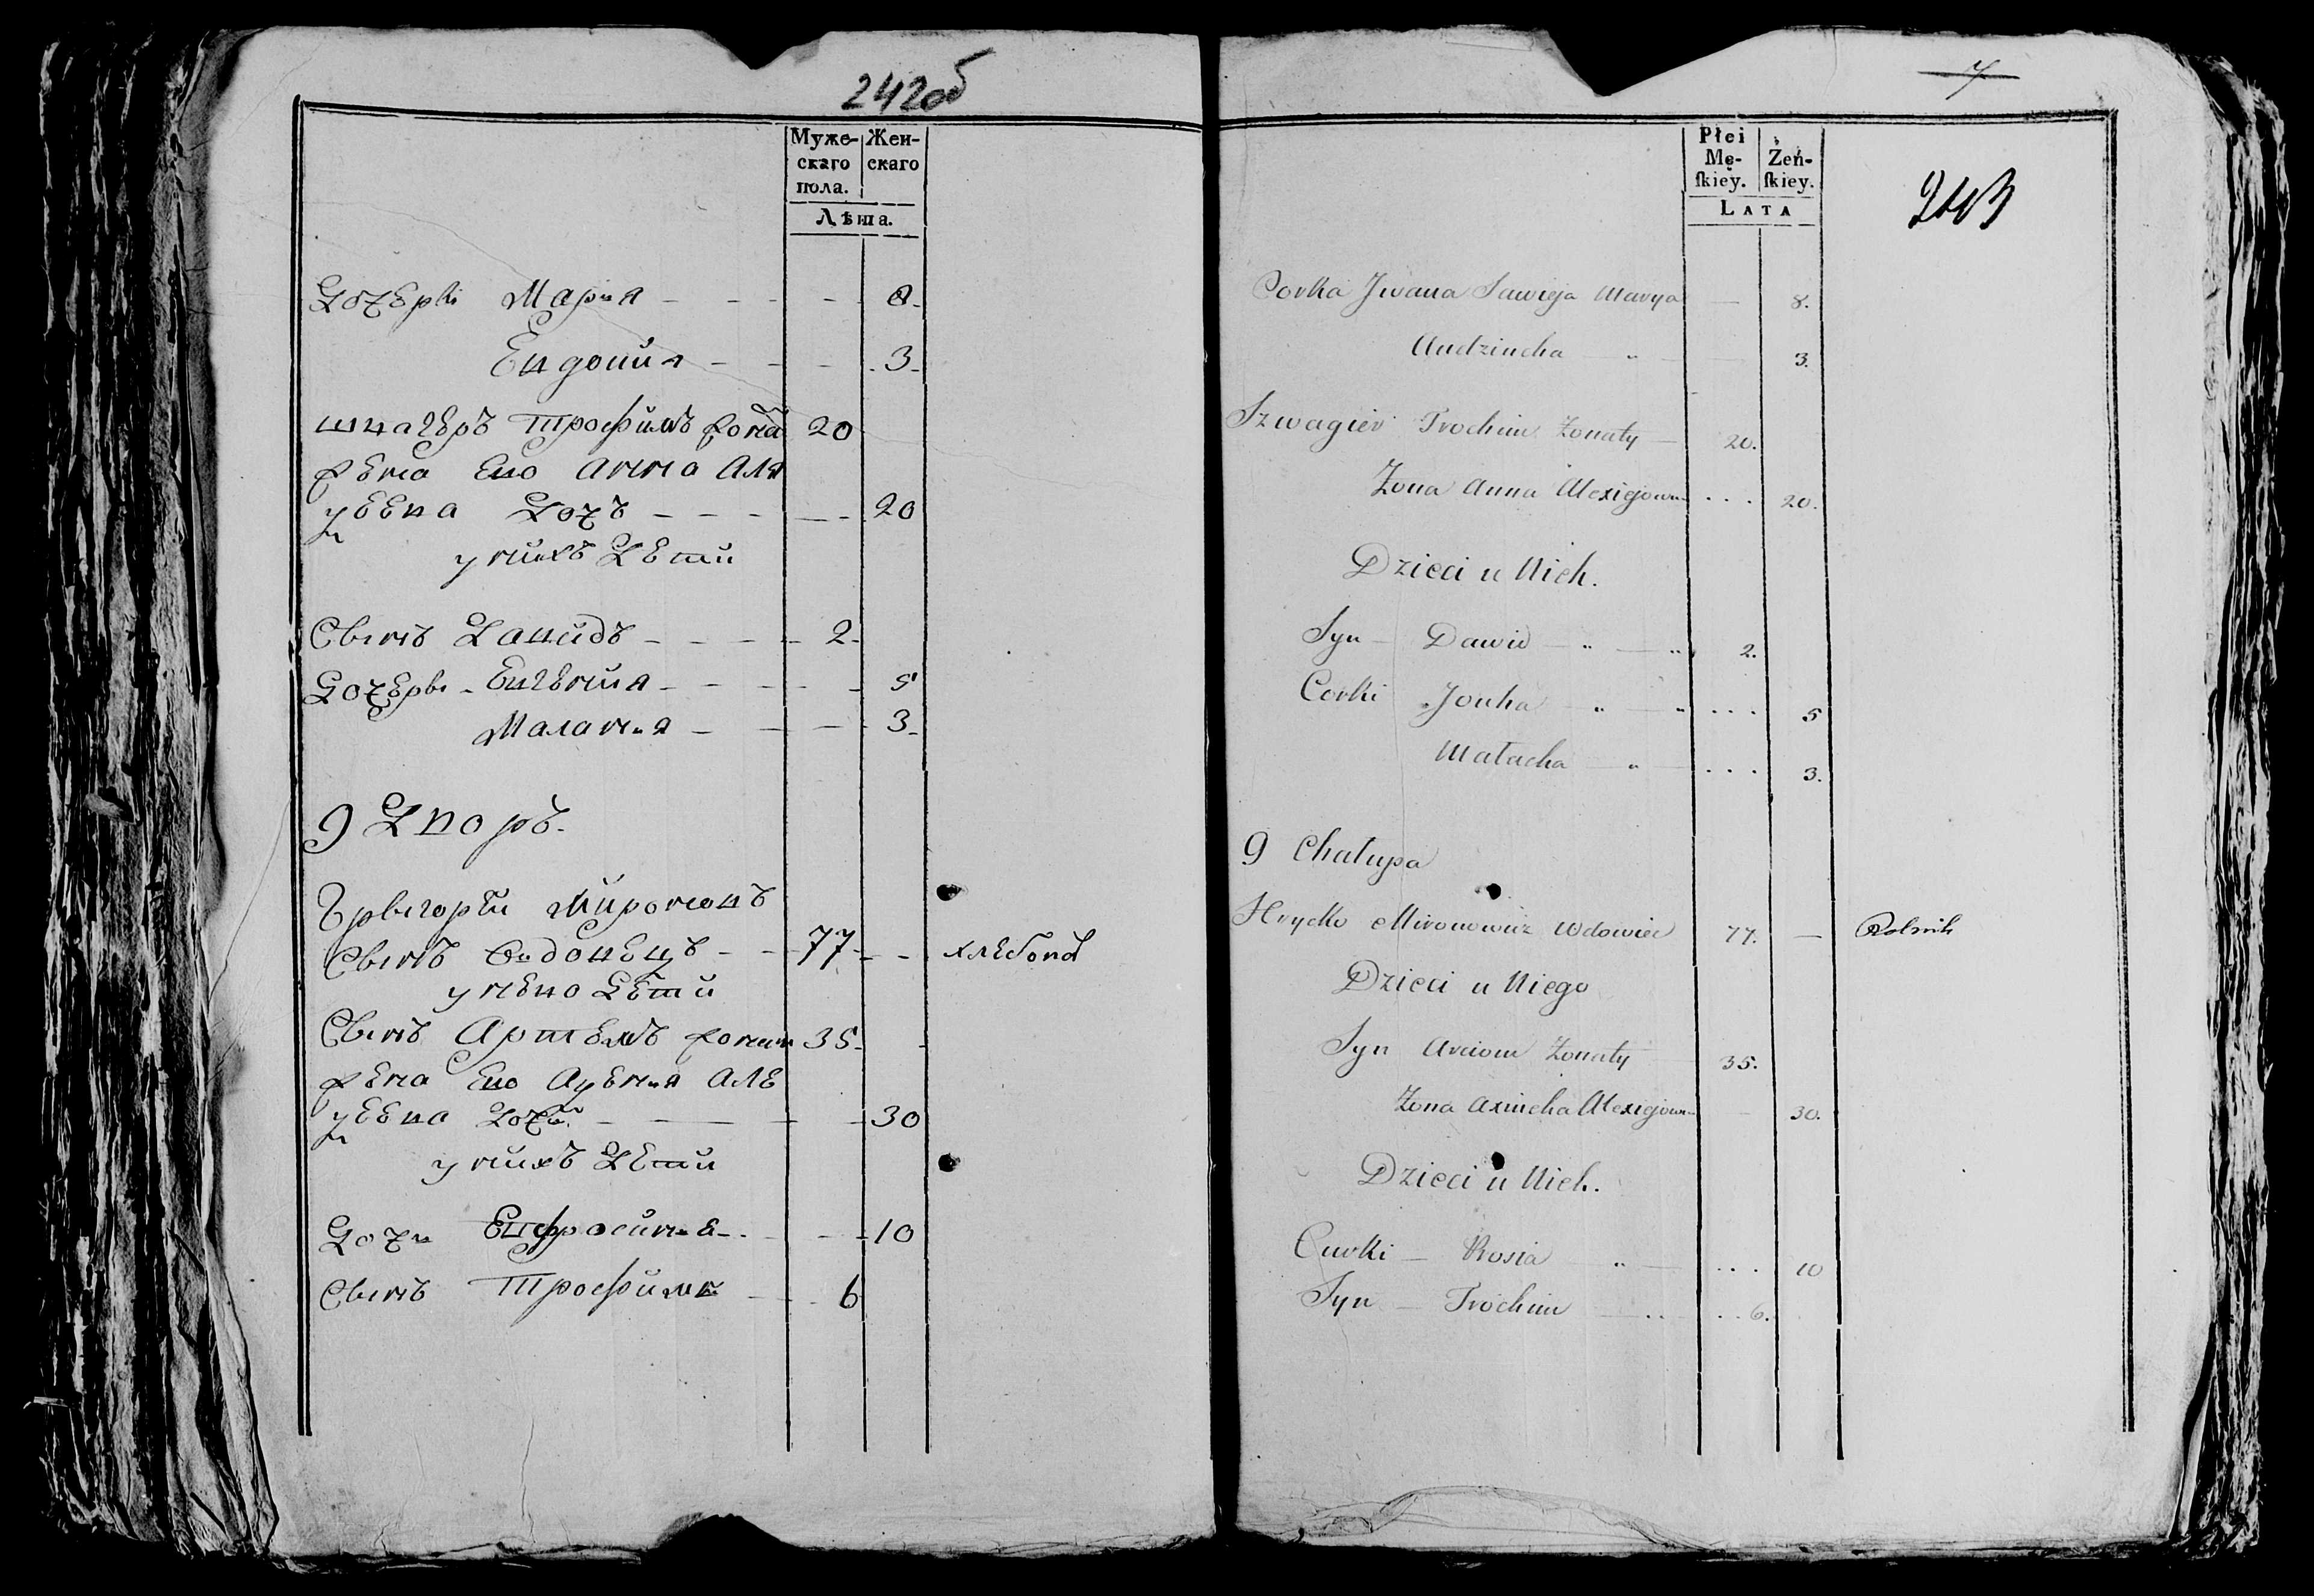 242об
Муже-
скаго
пола.
Жен-
скаго
Лѣта.
Дочери Мария - - - - 8-
Евдокия - - - 3-
швагеръ Трофимъ жона 20
жена Ево анна Але
уеева Дочъ - - - - - 20
у нихъ Дети
Сынъ Давидъ - - - - 2-
Дочеры - Евгения - - - - - 5
Малания - - - - 3-
9 Дворъ.
Грыгорий Мироновъ
Сынъ Вдовецъ - - 77 - - хлебопа
у нево Дети
Сынъ Артемъ жонат 35-
жена Ево Аксения Але
уеева Дочъ - - - - 30
у нихъ Дети
Дочи Ефросиния - - - 10
Сынъ Трофимъ - - 6
7
Płci
Mę-
ſkiey.
Żeń-
ſkiey.
LATA
243
Corka Jwana Sawieja Marya — 8.
Audziucha „ — 3.
Szwagier Trochim Żonaty — 20.
Żona Anna Alexiejown . . . 20.
Dzieci u Nich.
Syn — Dawid — „ — „ 2.
Corki Jouha „ — „ . . . 5
Małacha — „ — . . . 3.
9 Chałupa
Hrycko Mironowicz Wdowiec 77. — Rolnik
Dzieci u Niego
Syn Arciom Żonaty 35.
Żona Axincha Alexiejown — 30.
Dzieci u Nich.
Curki — Rosia „ — . . . 10
Syn — Trochim — . . . . 6.